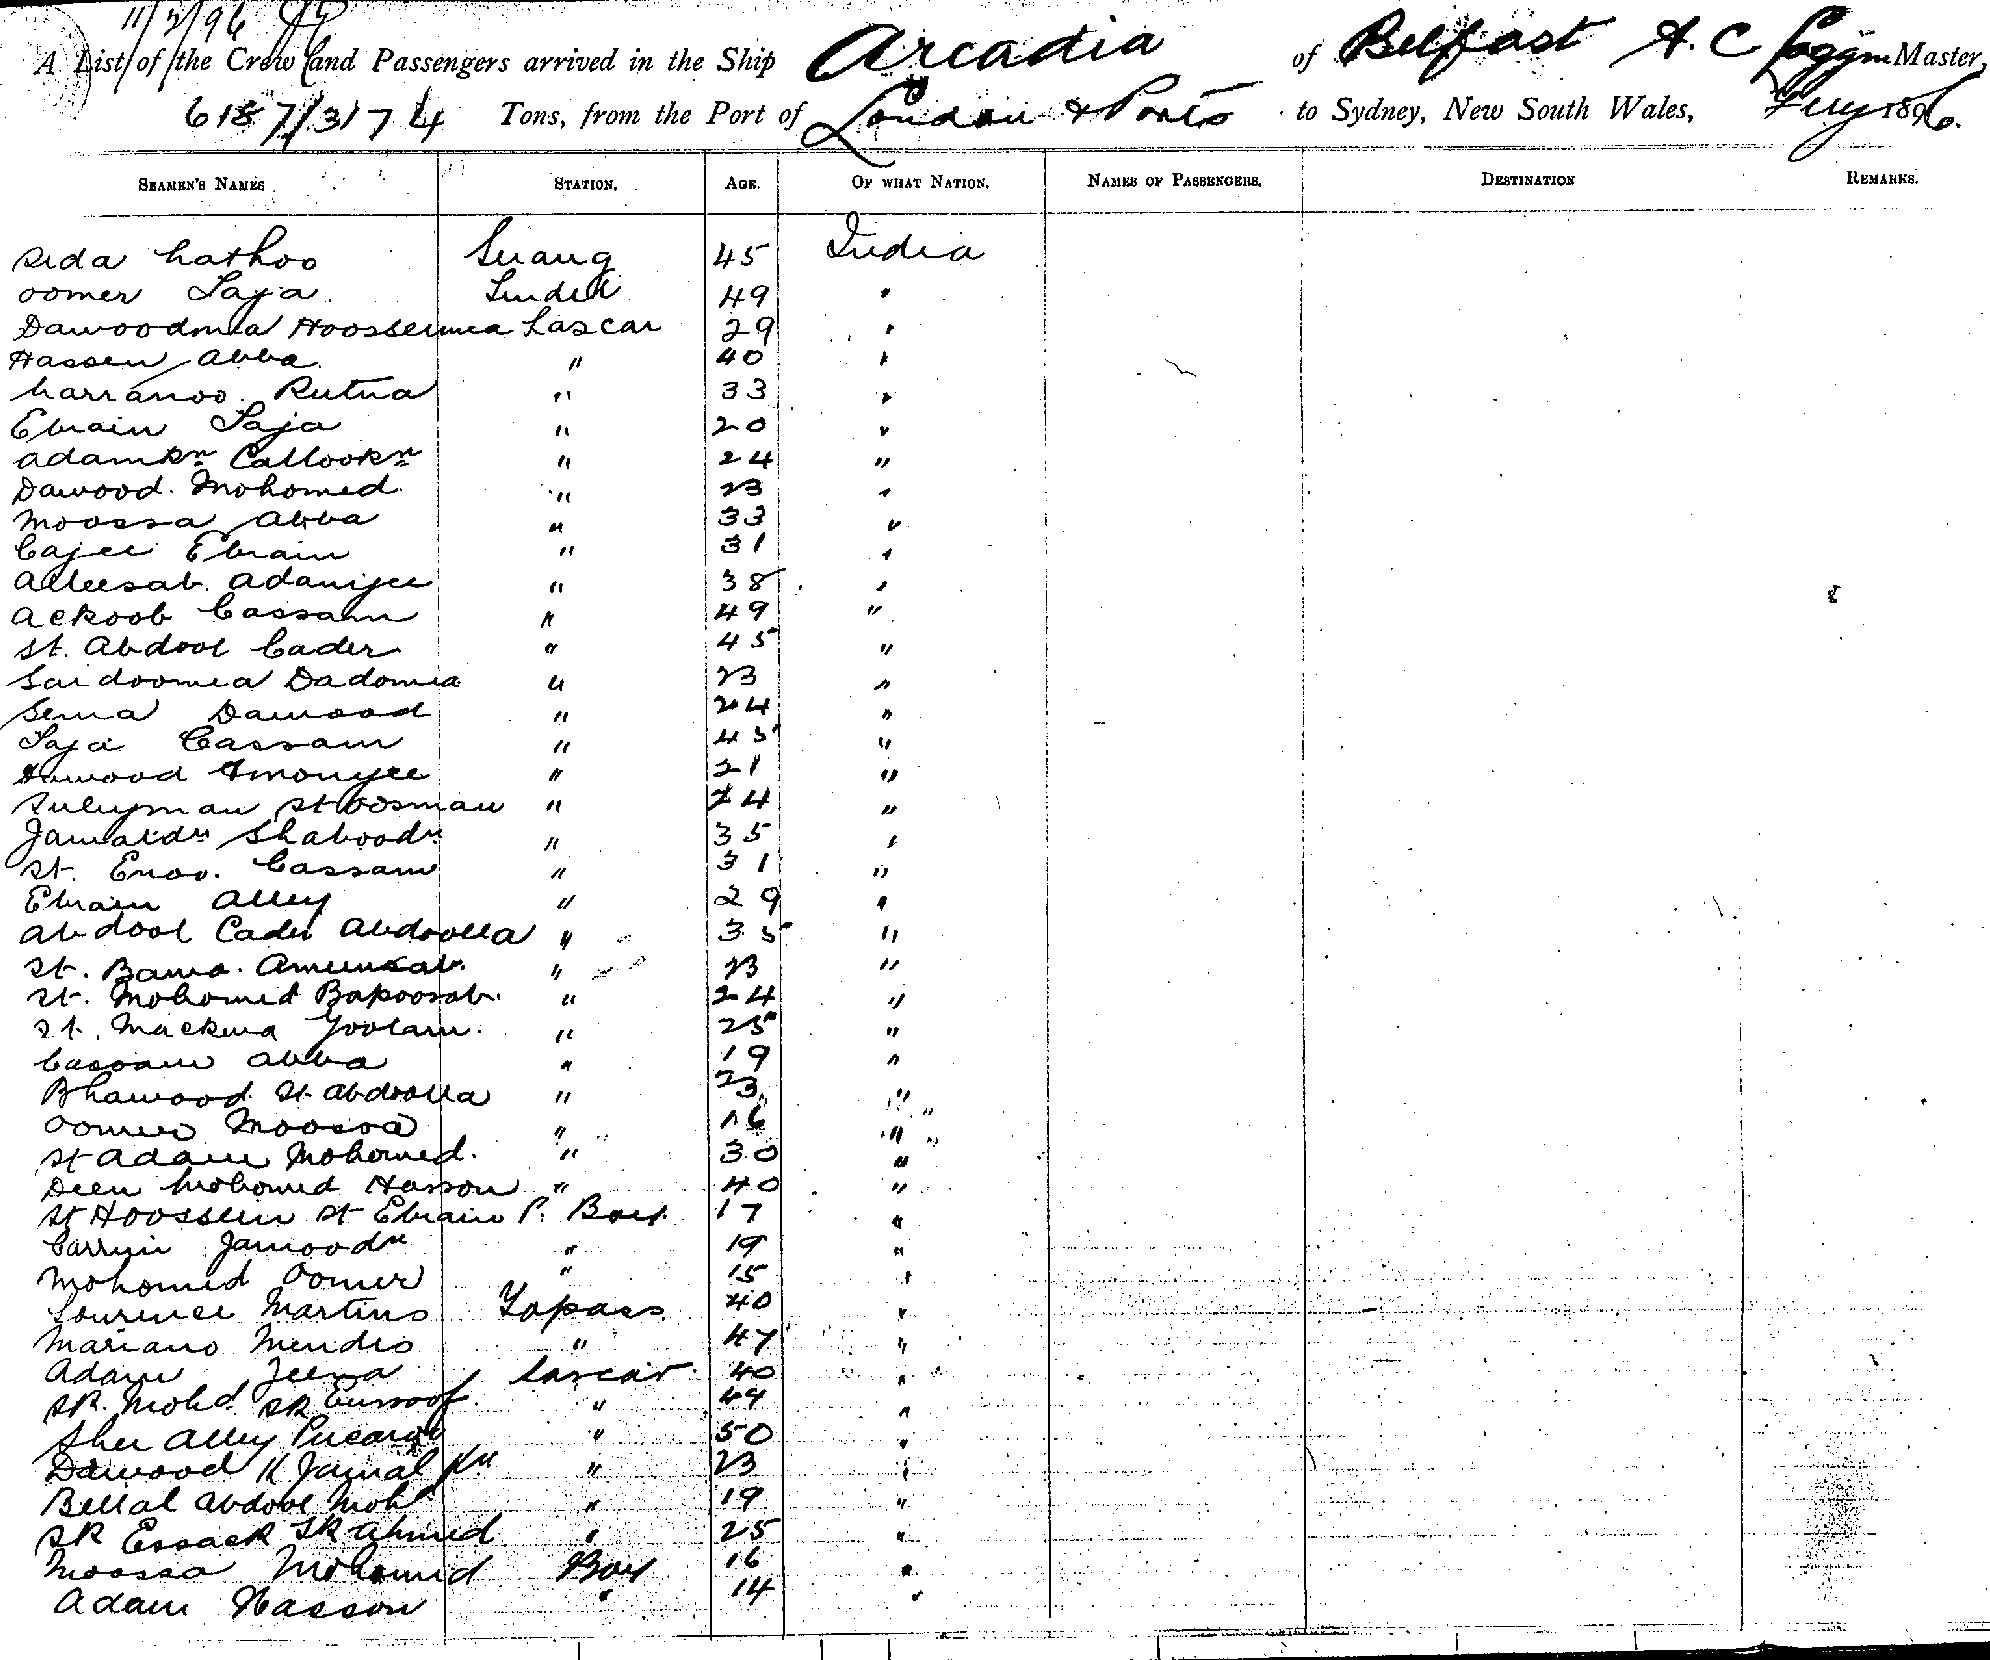 11/2/96
A List of the Crew and Passengers arrived in the Ship Arcadia of Belfast A. C Master,
6187/3174 Tons, from the Port of London & Ports to Sydney, New South Wales, Feby 1896.
SEAMEN'S NAMES STATION. AGE. OF WHAT NATION. NAMES OF PASSENGERS. DESTINATION REMARKS.
Sida Nathoo Serang 45 India
Oomer Saja Tindel 49 "
Dawoodmia Hoossenmea Lascar 29 "
Hassen Abba " 40 "
Narranoo Rutna " 33 "
Ebraim Saja " 20 "
Adamkn Callookn " 24 "
Dawood Mohomed " 23 "
Moossa Abba " 33 "
Cajee Ebraim " 31 "
Alleesab Adamjee " 38 "
Ackoob Cassam " 49 "
St. Abdool Cader " 45 "
Saidoomea Dadomea " 23 "
Dawood " 24 "
Saja Cassam " 45 "
Dawood " 21 "
Suleyman St Oosman " 24 "
Jamaldn Shaboodn " 35 "
St. Cassam " 31 "
Ebraim Alley " 29 "
Abdool Cader Abdoolla " 35 "
St. Bawa Ameensab " 23 "
St. Mohomed Bapoosab " 24 "
St. Goolam " 25 "
Cassam Abba " 19 "
Bhawood St Abdoolla " 23 "
Oomer Moossa " 16 "
St Adam Mohomed " 30 "
Deen Mohomed Hasson " 40 "
St Hoossein St Ebraim P. Boy 17 "
Carrym Jamoodn " 19 "
Mohomed Oomer " 15 "
Lourence Martins Topass 40 "
Mariano Mendes " 47 "
Adam Jeena Lascar 40 "
SK. Mohd SK Eusoof " 49 "
Sher Alley " 50 "
Dawood K Jamal Kn " 23 "
Bellal Abdool Mohd " 19 "
SK Essack SK Ahmed " 25 "
Moossa Mohomed Boy 16 "
Adam Hasson " 14 "